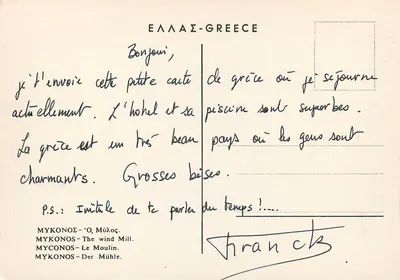 ΕΛΛΑΣ-GREECE
Bonjour,
je t'envoie cette petite carte de grèce où je séjourne
actuellement. L'hôtel et sa piscine sont superbes.
La grèce est un très beau pays où les gens sont
charmants. Grosses bises.
P.S.: Inutile de te parler du temps!....
Franck
ΜΥΚΟΝΟΣ- Ὁ, Μύλος.
MYKONOS-The wind Mill.
MYCONOS-Le Moulin.
MYCONOS-Der Mühle.